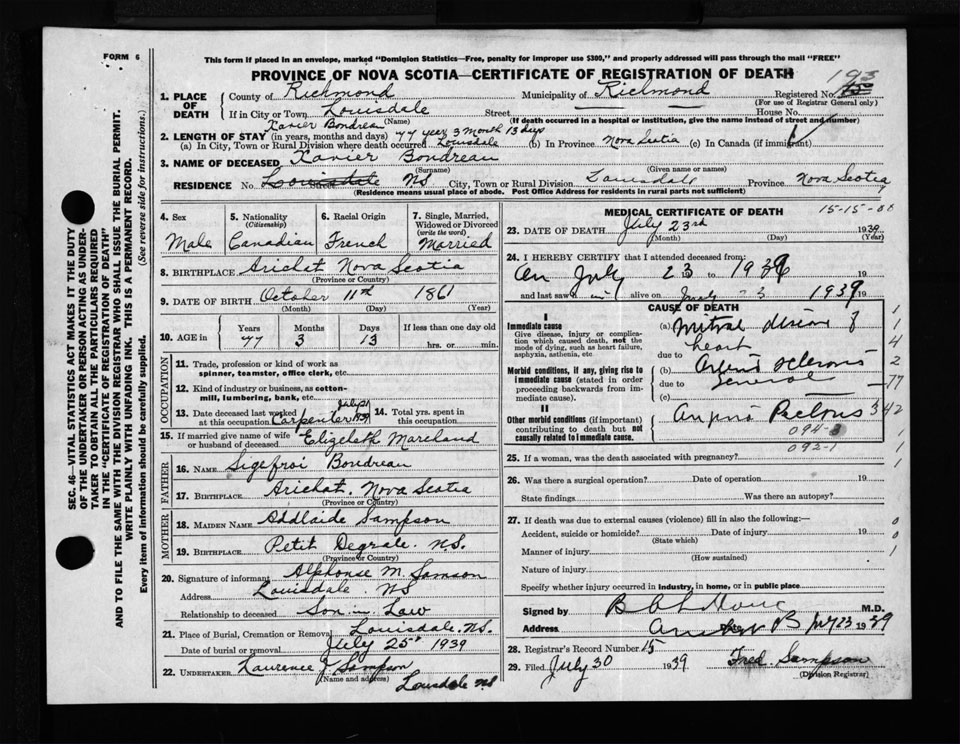 FORM 6
This form if placed in an envelope, marked "Dominion Statistics—Free, penalty for improper use $300," and properly addressed will pass through the mail "FREE"
PROVINCE OF NOVA SCOTIA—CERTIFICATE OF REGISTRATION OF DEATH
193
1. PLACE OF DEATH County of Richmond Municipality of Richmond Registered No.
(For use of Registrar General only)
If in City or Town Louisdale Street House No.
(If death occurred in a hospital or institution, give the name instead of street and number)
Xavier Bondreau (Name)
2. LENGTH OF STAY (in years, months and days) 77 year 3 month 13 days
(a) In City, Town or Rural Division where death occurred Louisdale (b) In Province Nova Scotia (c) In Canada (if immigrant)
3. NAME OF DECEASED Xavier Bondreau
(Surname) (Given name or names)
RESIDENCE No. Louisdale NS City, Town or Rural Division Louisdale Province Nova Scotia
(Residence means usual place of abode. Post Office Address for residents in rural parts not sufficient)
SEC. 46—VITAL STATISTICS ACT MAKES IT THE DUTY
OF THE UNDERTAKER OR PERSON ACTING AS UNDER-
TAKER TO OBTAIN ALL THE PARTICULARS REQUIRED
IN THE "CERTIFICATE OF REGISTRATION OF DEATH"
AND TO FILE THE SAME WITH THE DIVISION REGISTRAR WHO SHALL ISSUE THE BURIAL PERMIT.
WRITE PLAINLY WITH UNFADING INK. THIS IS A PERMANENT RECORD.
Every item of information should be carefully supplied. (See reverse side for instructions.)
4. Sex Male
5. Nationality (Citizenship) Canadian
6. Racial Origin French
7. Single, Married, Widowed or Divorced (write the word) Married
8. BIRTHPLACE Arichat Nova Scotia
(Province or Country)
9. DATE OF BIRTH October 11th 1861
(Month) (Day) (Year)
10. AGE in Years 77 Months 3 Days 13 If less than one day hrs. or min.
OCCUPATION
11. Trade, profession or kind of work as spinner, teamster, office clerk, etc.
12. Kind of industry or business, as cotton-mill, lumbering, bank, etc.
13. Date deceased last worked at this occupation Carpenter July 1939
14. Total yrs. spent in this occupation
15. If married give name of wife or husband of deceased Elizelath Marchand
FATHER
16. NAME Sigefroi Bondreau
17. BIRTHPLACE Arichat, Nova Scotia
(Province or Country)
MOTHER
18. MAIDEN NAME Addlaide Sampson
19. BIRTHPLACE Petit Degrale. N.S.
(Province or Country)
20. Signature of informant Alphonse M. Samson
Address Louisdale. NS
Relationship to deceased Son in Law
21. Place of Burial, Cremation or Removal Louisdale. N.S.
Date of burial or removal July 25th 1939
22. UNDERTAKER Laurence J Sampson
(Name and address) Louisdale NS
MEDICAL CERTIFICATE OF DEATH 15-15-00
23. DATE OF DEATH July 23rd 1939
(Month) (Day) (Year)
24. I HEREBY CERTIFY that I attended deceased from:
On July 23 to 1939 19
and last saw him alive on July 23 1939 19
CAUSE OF DEATH
I
Immediate cause
Give disease, injury or complication which caused death, not the mode of dying, such as heart failure, asphyxia, asthenia, etc
(a) Mitral lesion of heart
due to
Morbid conditions, if any, giving rise to immediate cause (stated in order proceeding backwards from immediate cause).
(b) sclerosis
due to General
(c)
II
Other morbid conditions (if important) contributing to death but not causally related to immediate cause.
Angina Pectoris
094-
092-1
1
1
4
2
—77
342
1
1
1
25. If a woman, was the death associated with pregnancy?
26. Was there a surgical operation? Date of operation 19
State findings Was there an autopsy?
27. If death was due to external causes (violence) fill in also the following:—
Accident, suicide or homicide? Date of injury 19
(State which)
Manner of injury
(How sustained)
Nature of injury
Specify whether injury occurred in industry, in home, or in public place
0
0
1
Signed by M.D.
Address July 23 1939
28. Registrar's Record Number 15
29. Filed July 30 1939 Fred. Sampson
(Division Registrar)